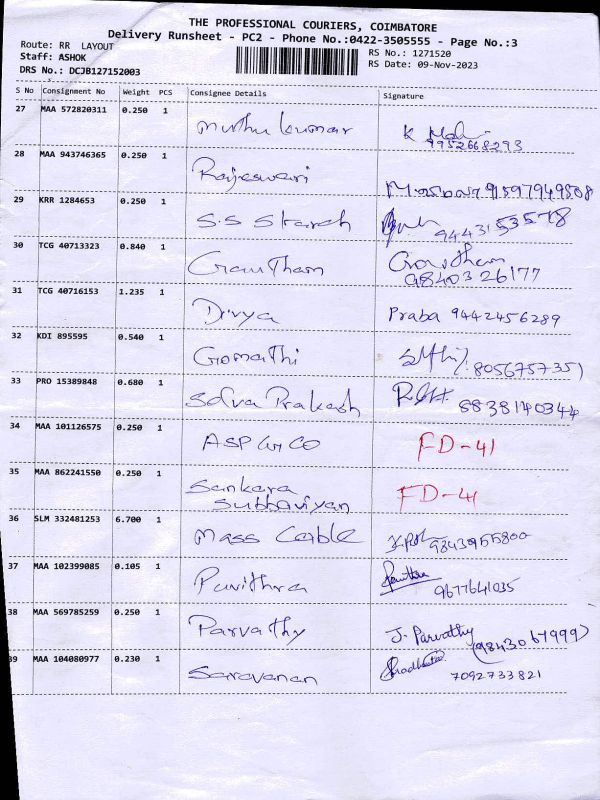 THE PROFESSIONAL COURIERS, COIMBATORE
Delivery Runsheet - PC2 - Phone No.:0422-3505555 - Page No.:3
Route: RR LAYOUT
Staff: ASHOK
DRS No.: DCJB127152003
RS No.: 1271520
RS Date: 09-Nov-2023
S No Consignment No Weight PCS Consignee Details Signature
27 MAA 572820311 0.250 1 Muthu kumar K 9952668293
28 MAA 943746365 0.250 1 Rajeswari
29 KRR 1284653 0.250 1 S.S Starch 9443153578
30 TCG 40713323 0.840 1 Gautham Gowtham 9840326177
31 TCG 40716153 1.235 1 Divya Praba 9442456289
32 KDI 895595 0.540 1 Gomathi 8056757351
33 PRO 15389848 0.680 1 Selva Prakash 8838140344
34 MAA 101126575 0.250 1 ASP & CO FD-41
35 MAA 862241550 0.250 1 Sankara FD-41
36 SLM 332481253 6.700 1 Mass Cable 9843955800
37 MAA 102399085 0.105 1 Pavithra 9677641035
38 MAA 569785259 0.250 1 Parvathy J. Parvathy (9843067999)
39 MAA 104080977 0.230 1 Saravanan 7092733821